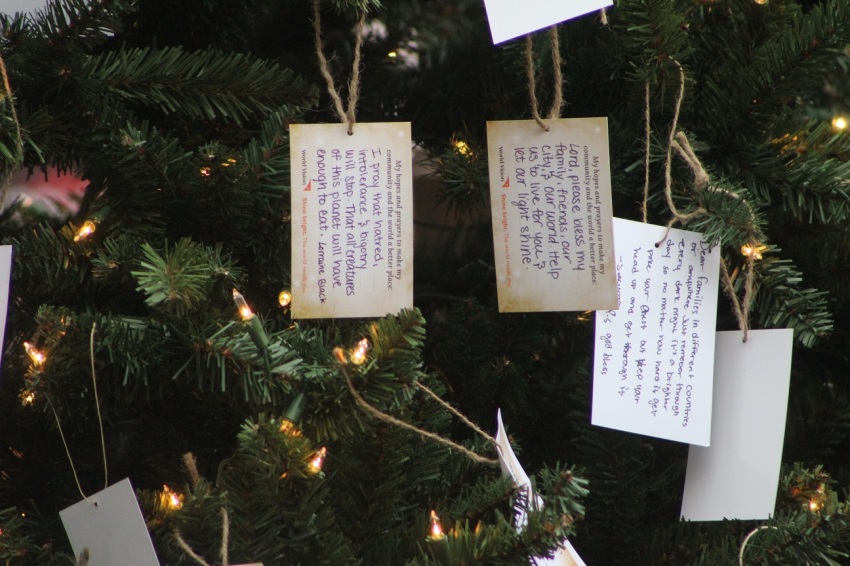 My hopes and prayers to make my
community and the world a better place:
I pray that hatred,
intolerance & bigotry
will stop. That all creatures
of this planet will have
enough to eat. Lorraine Black
World Vision Shine bright. The world needs you.
My hopes and prayers to make my
community and the world a better place:
Lord, please bless my
family, friends, our
city & our world. Help
us to live for you &
let our light shine.
World Vision Shine bright. The world needs you.
Dear families in different countries
or anywhere Just remeber through
every dark night it's a brighter
day so no matter how hard it get
your chest out keep your
head up and get through it
god bless